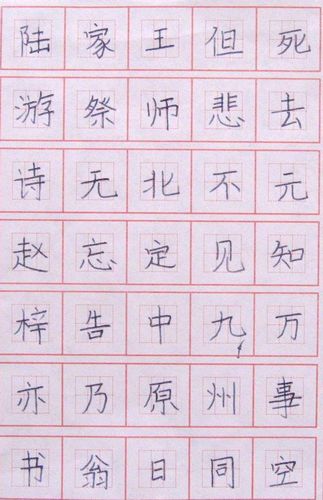 死去元知万事空
但悲不见九州同
王师北定中原日
家祭无忘告乃翁
陆游诗赵梓亦书